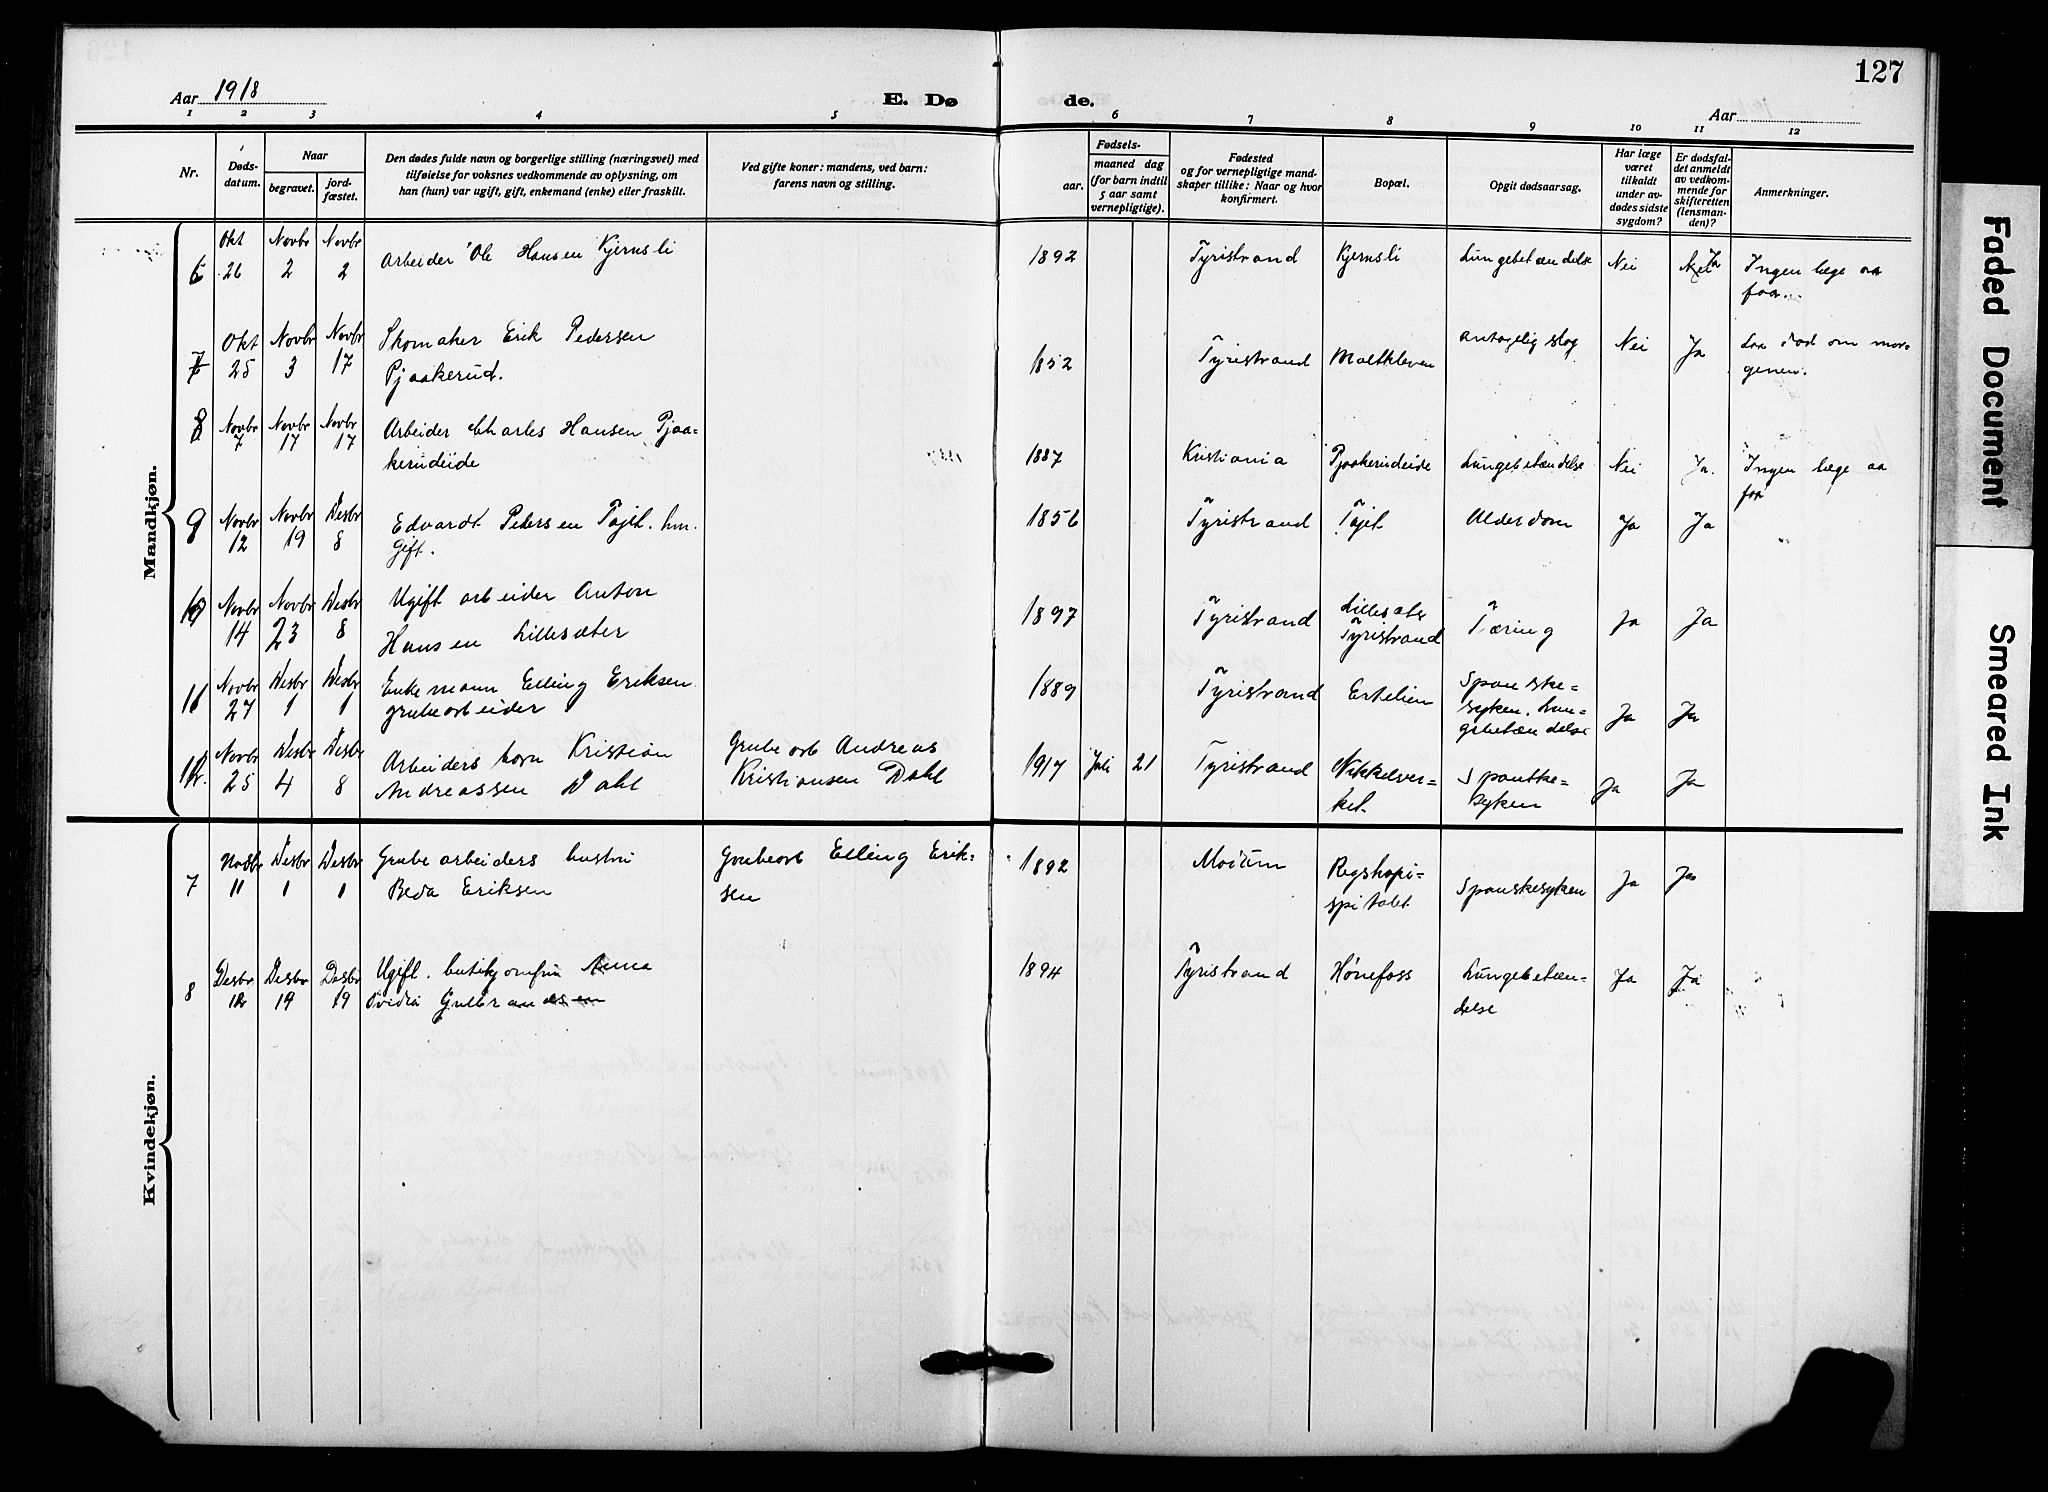 127
Aar 1918
E. Dø de.
Aar
1 2 3 4 5 6 7 8 9 10 11 12
Nr.
Døds-
datum.
Naar
begravet.
jord-
fæstet.
Den dødes fulde navn og borgerlige stilling (næringsvei) med
tilføielse for voksnes vedkommende av oplysning, om
han (hun) var ugift, gift, enkemand (enke) eller fraskilt.
Ved gifte koner: mandens, ved barn:
farens navn og stilling.
Fødsels-
aar.
maaned dag
(for barn indtil
5 aar samt
vernepligtige).
Fødested
og for vernepligtige mand-
skaper tillike: Naar og hvor
konfirmert.
Bopæl.
Opgit dødsaarsag.
Har læge
været
tilkaldt
under av-
dødes sidste
sygdom?
Er dødsfal-
det anmeldt
av vedkom-
mende for
skifteretten
(lensman-
den)?
Anmerkninger.
Mandkjøn.
6 Okt 26 Novbr 2 Novbr 2 Arbeider Ole Hansen Kjernsli 1892 Tyristrand Kjernsli Lungebetændelse Nei Ja Ingen læge aa
faa.
7 Okt 25 Novbr 3 Novbr 17 Skomaker Erik Pedersen
Pjaakerud. 1852 Tyristrand Moltkleven antagelig slag Nei Ja Laa död om mor-
genen.
8 Novbr 7 Novbr 17 Novbr 17 Arbeider Charles Hansen Pjaa-
kerudeide 1887 Kristiania Pjaakerudeide Lungebetændelse Nei Ja. Ingen læge aa
faa
9 Novbr 12 Novbr 19 Desbr 8 Edvardt Petersen Tajet. hm.
Gift. 1856 Tyristrand Tajet Alderdom Ja Ja
10 Novbr 14 Novbr 23 Desbr 8 Ugift arbeider Anton
Hansen Lillesæter 1897 Tyristrand Lillesæter
Tyristrand Tæring Ja Ja
11 Novbr 27 Desbr 1 Desbr 1 Enkemann Elling Eriksen
grubearbeider 1889 Tyristrand Ertelien Spanske-
syken. Lun-
gebetændelse Ja Ja
12. Novbr 25 Desbr 4 Desbr 8 Arbeiders barn Kristian
Andreassen Dahl Grubearb Andreas
Kristiansen Dahl 1917 Juli 21 Tyristrand Nikkelver-
ket. Spanske-
syken Ja Ja
Kvindekjøn.
7 Novbr 11 Desbr 1 Desbr 1 Grubearbeiders hustru
Beda Eriksen Grubearb Elling Erik-
sen 1892 Modum Rigshopi-
spitalet Spanskesyken Ja Ja
8 Desbr 12 Desbr 19 Desbr 19 Ugift. butikjomfru Anna
Ovidia Gulbrandsen 1894 Tyristrand Hønefoss Lungebetæn-
delse Ja Ja
Faded Document
Smeared Ink